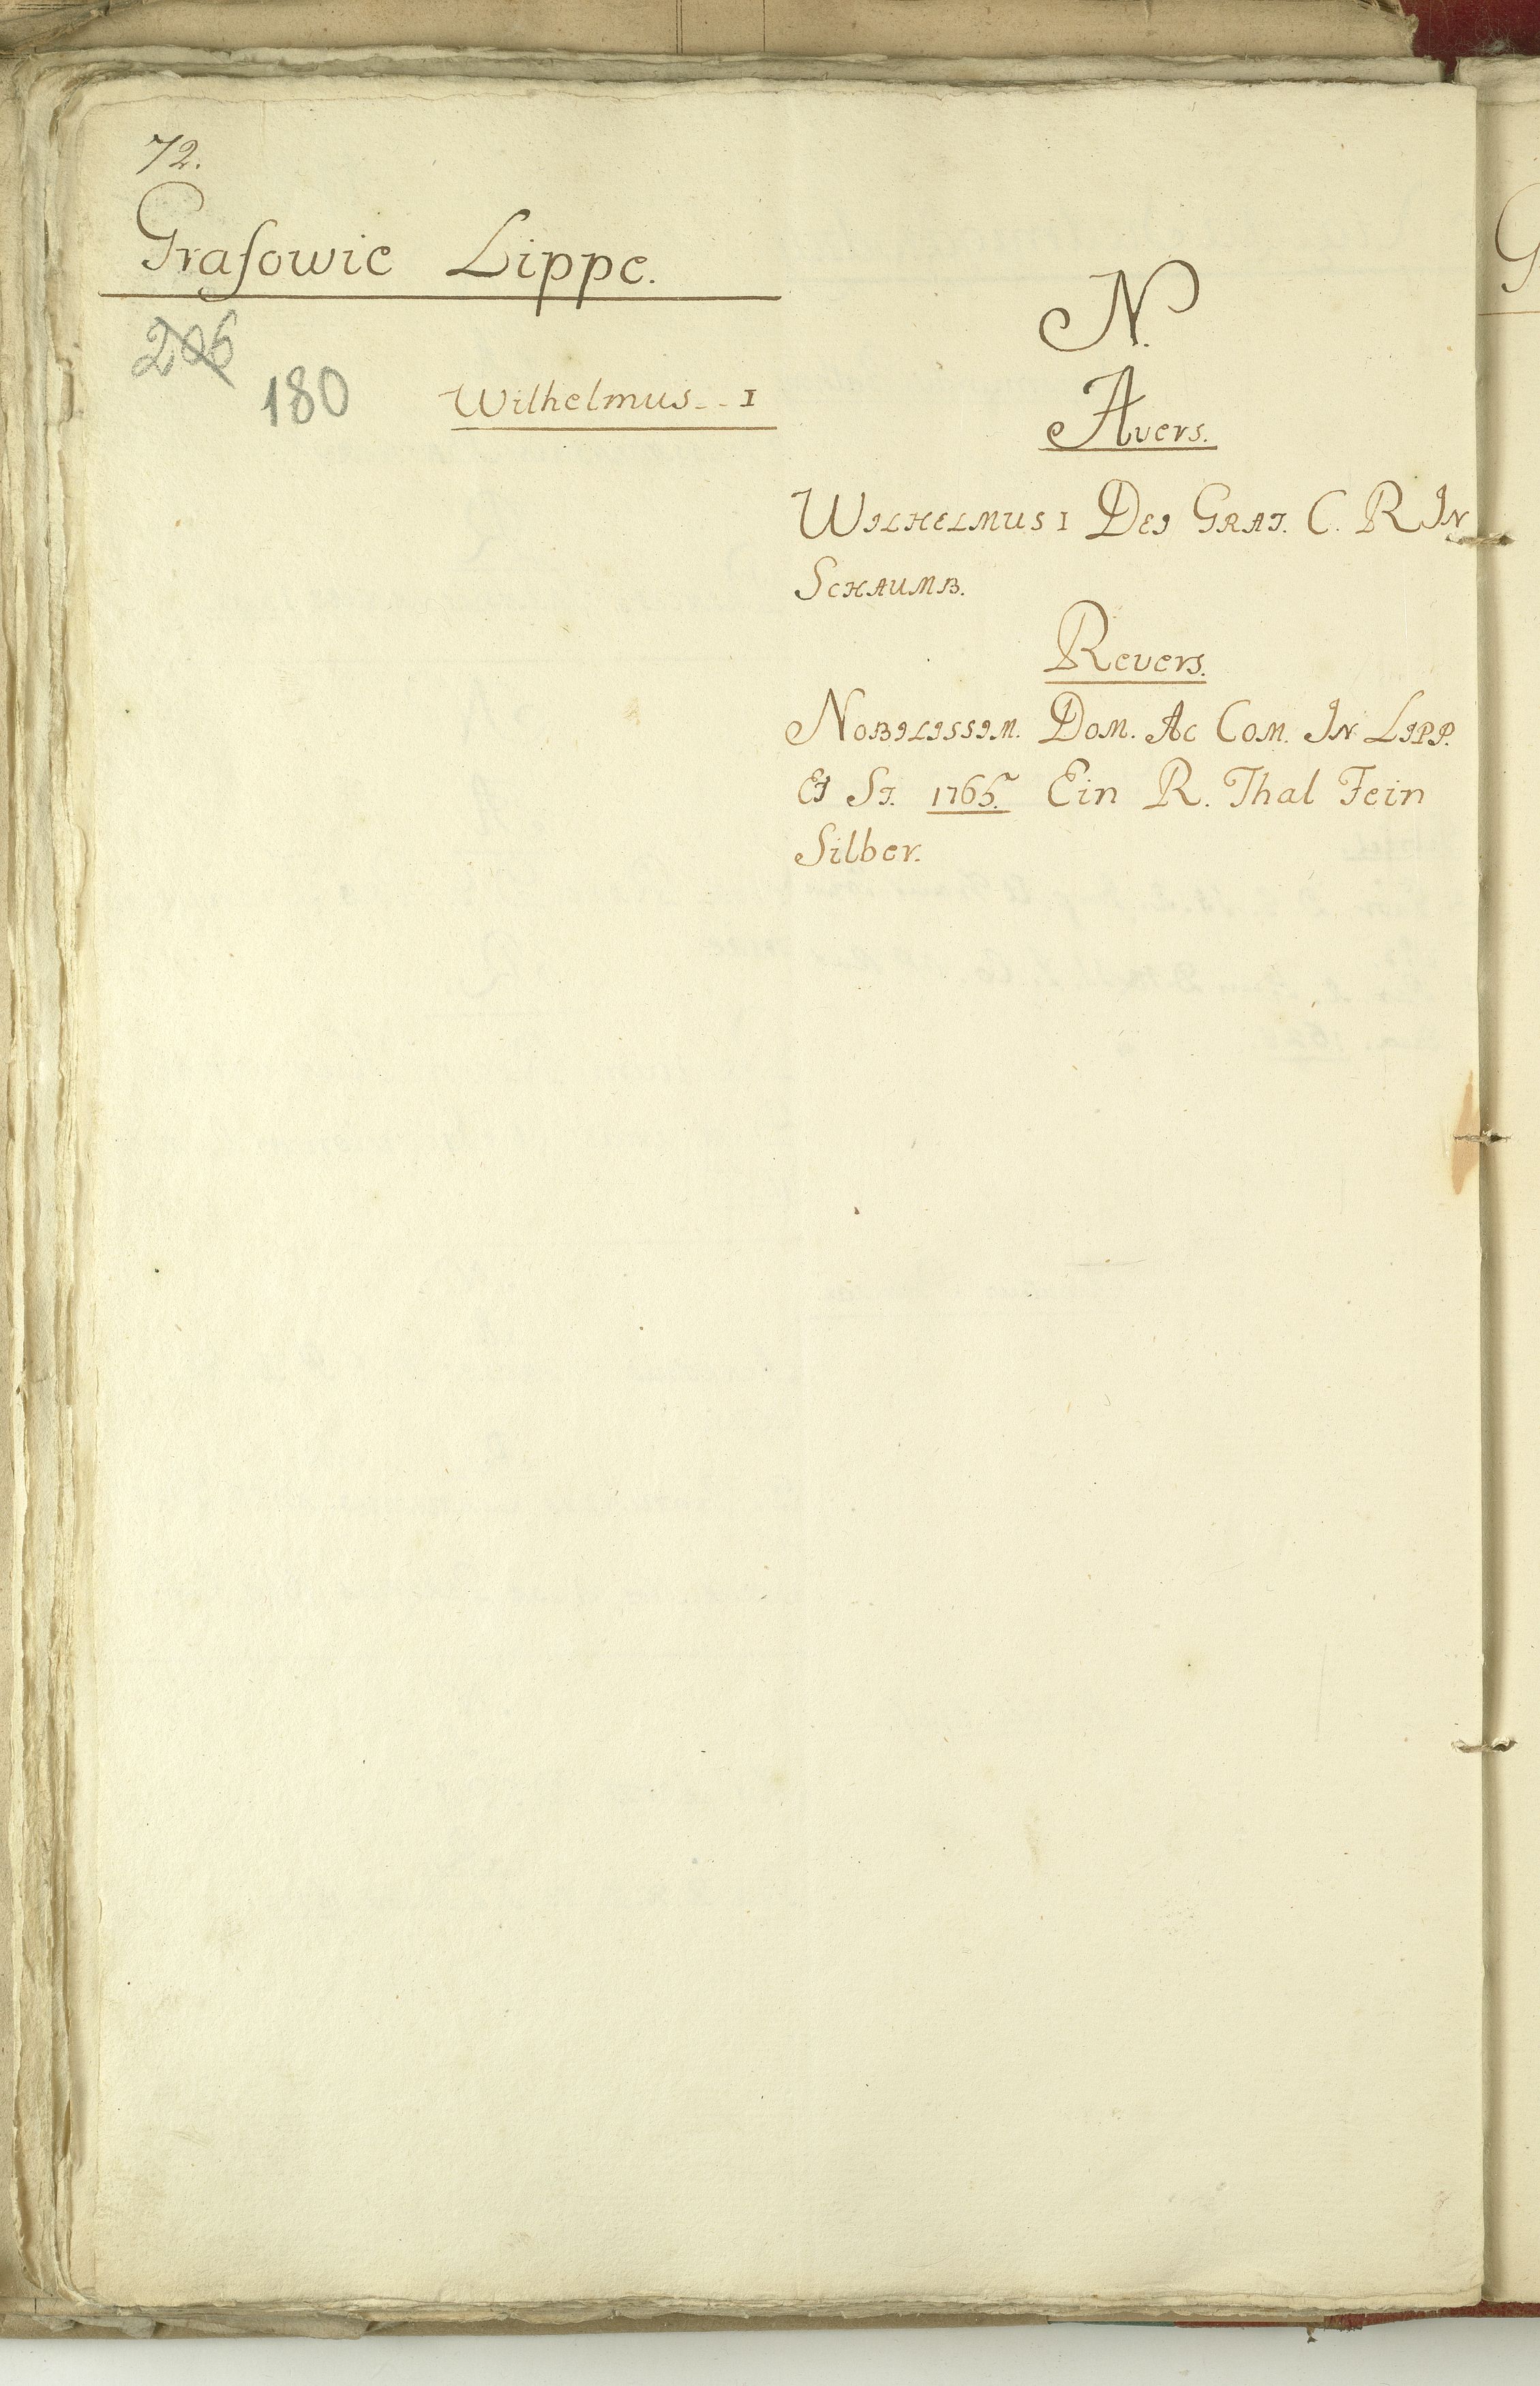 72.
Grafowie Lippe.
206
180
Wilhelmus - - I
N.
Avers.
WILHELMUS I DEI GRAT. C. R IN
SCHAUMB.
Revers.
NOBILISSIM. DOM. AC COM. IN LIPP.
ET ST. 1765. Ein R. Thal Fein
Silber.